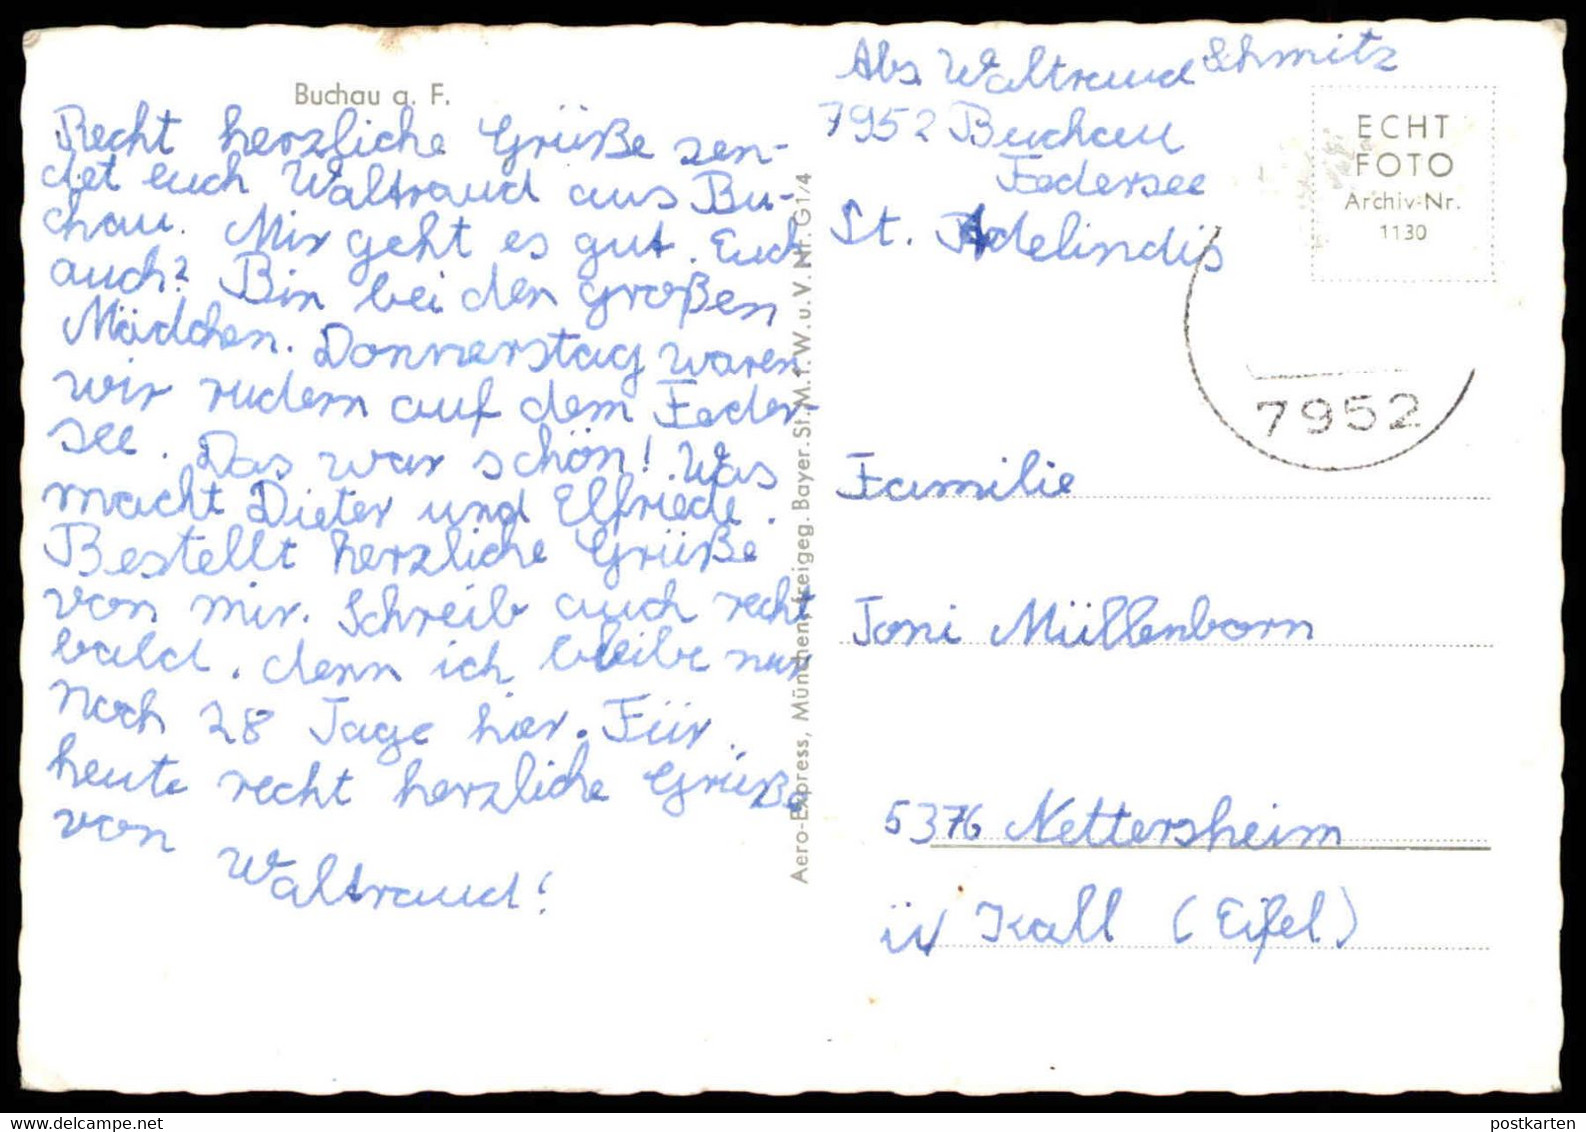 Buchau a. F.
Recht herzliche Grüße sen-
det euch Waltraud aus Bu-
chau. Mir geht es gut. Euch
auch? Bin bei den großen
Mädchen. Donnerstag waren
wir rudern auf dem Feder-
see. Das war schön! Was
macht Dieter und Elfriede.
Bestellt herzliche Grüße
von mir. Schreib auch recht
bald, denn ich bleibe nur
noch 28 Tage hier. Für
heute recht herzliche Grüße
von
Waltraud!
Aero-Express, München, freigeg. Bayer. St. M. f. W. u. V. Nr. G1/4
Abs Waltraud Schmitz
7952 Buchau
Federsee
St. Adelindis
ECHT
FOTO
Archiv-Nr.
1130
7952
Familie
Toni Müllenborn
5376 Nettersheim
üv Kall (Eifel)
postkarten